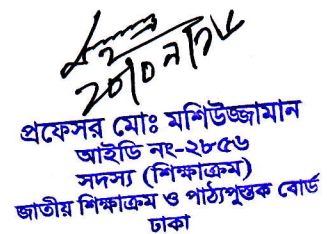 প্রফেসর মোঃ মশিউজ্জামান
আইডি নং-২৮৫৬
সদস্য (শিক্ষাক্রম)
জাতীয় শিক্ষাক্রম ও পাঠ্যপুস্তক বোর্ড
ঢাকা